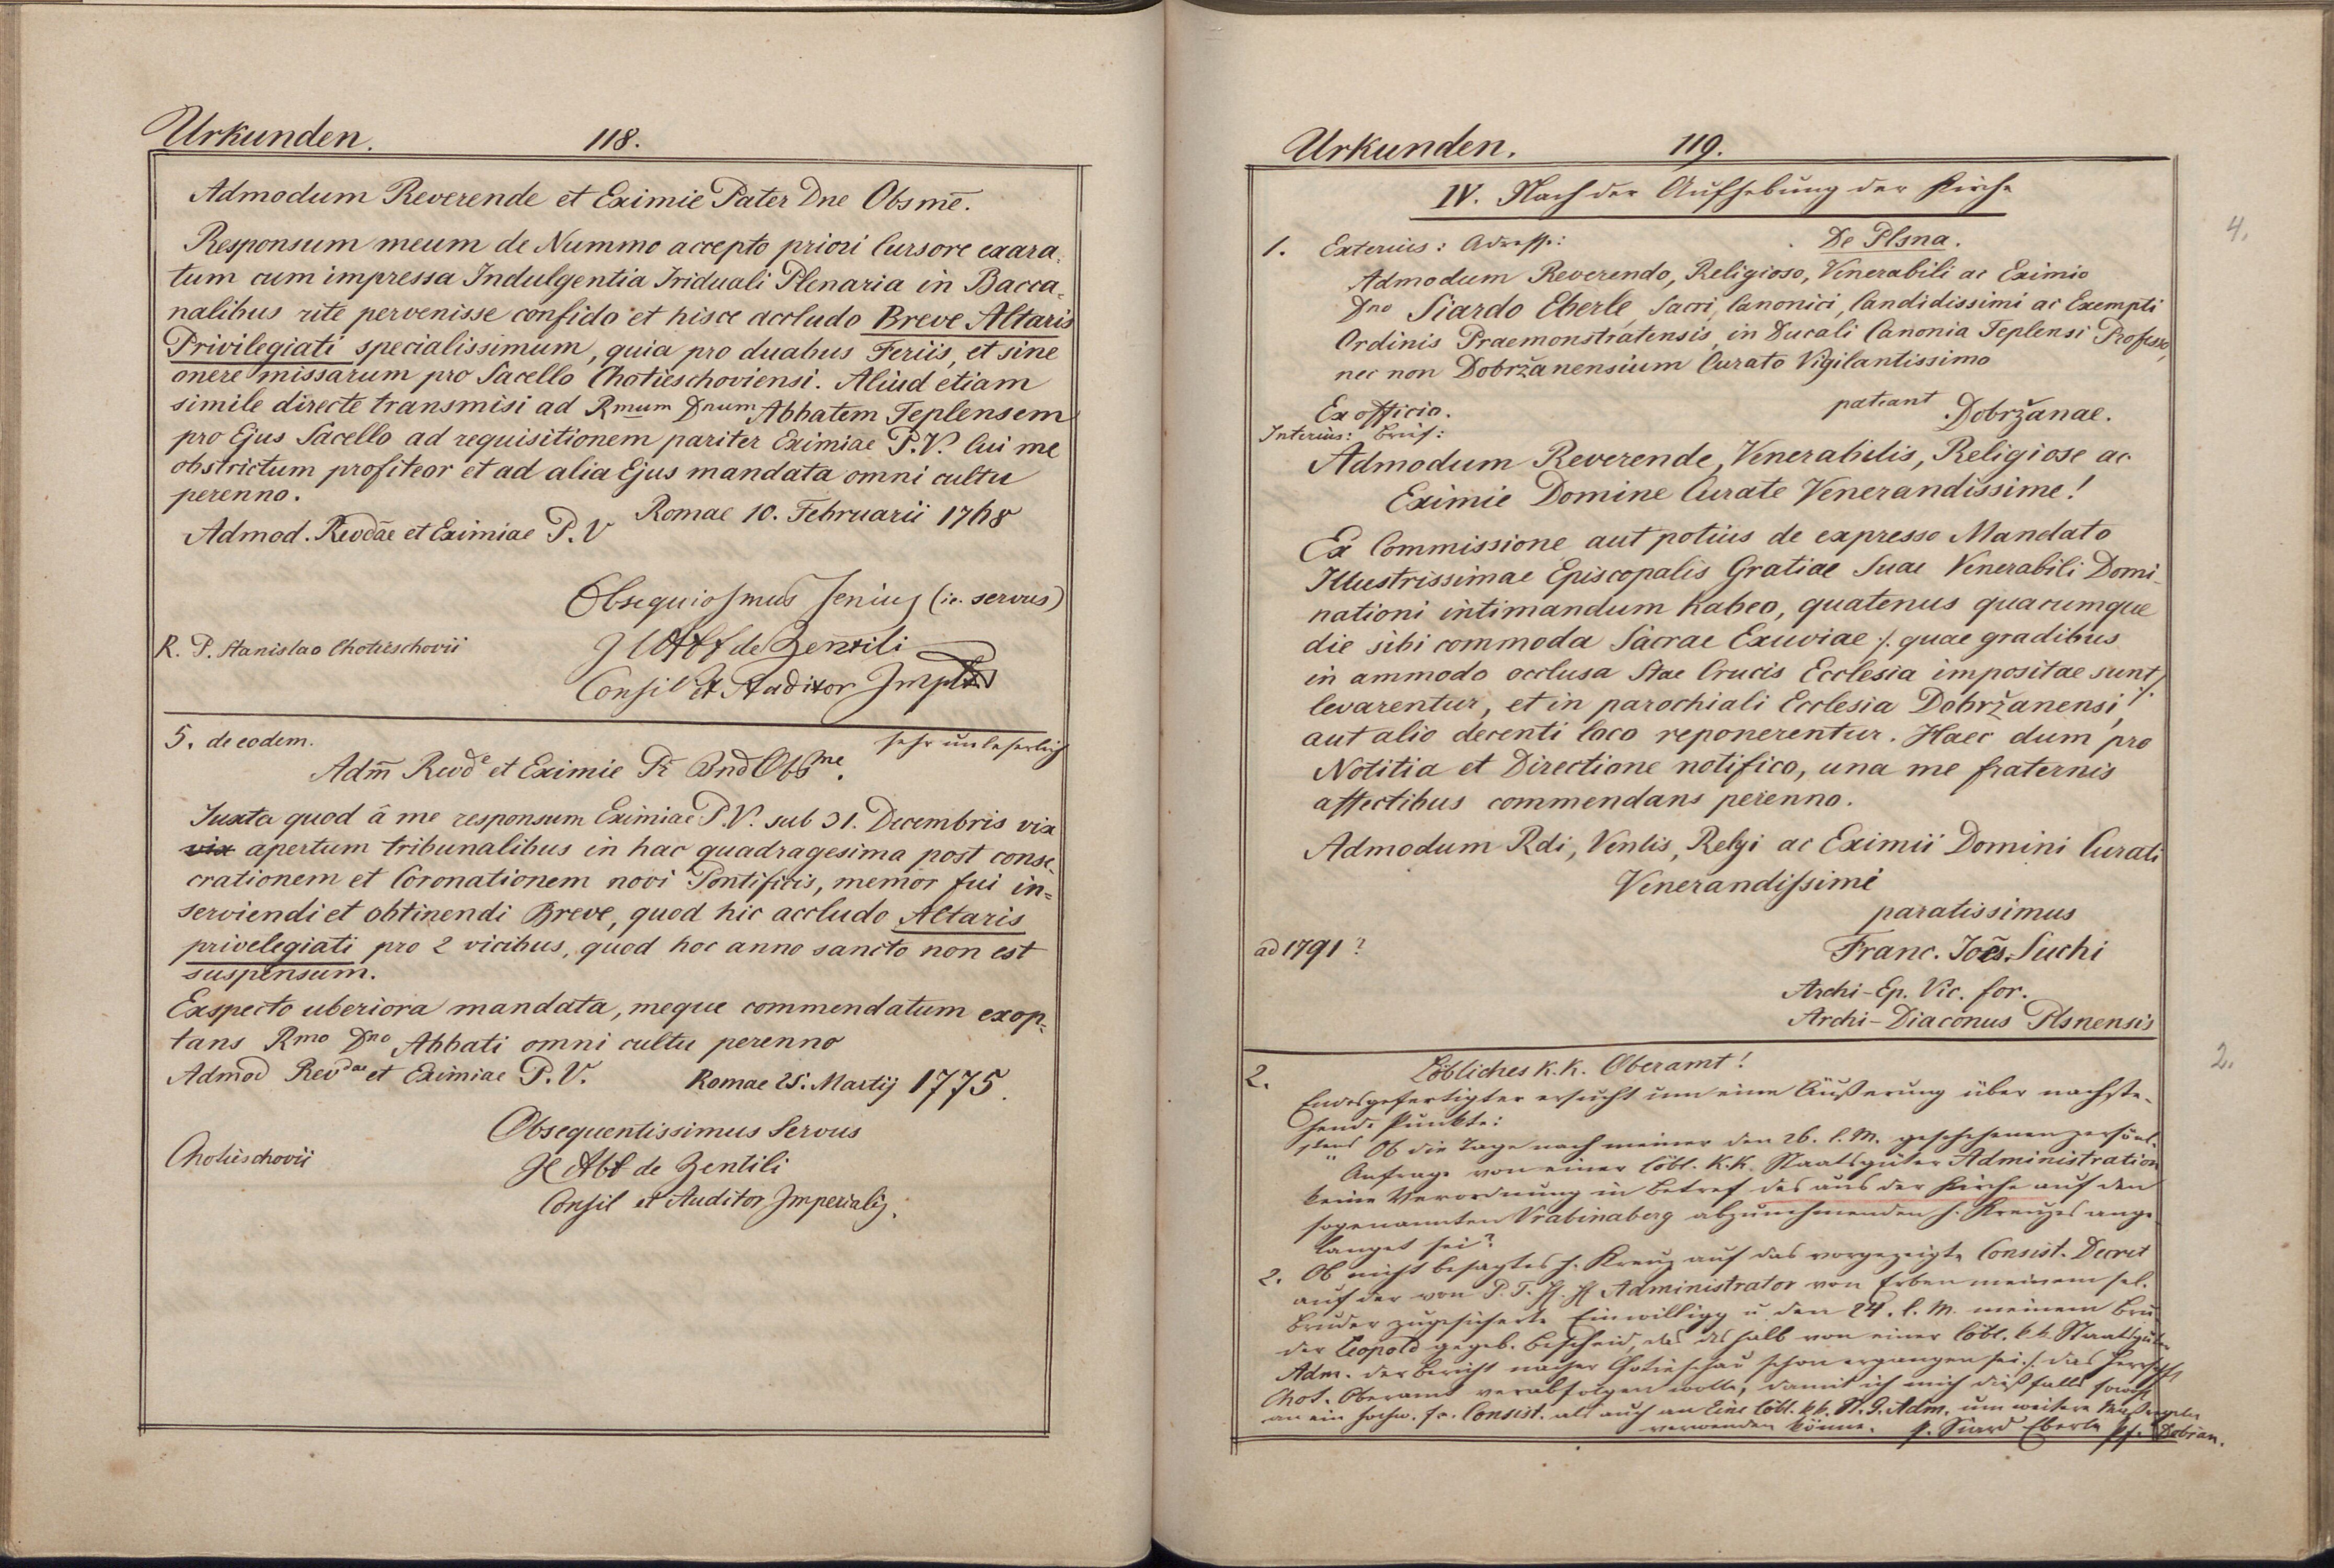 Urkunden. 118.
Admodum Reverende et Eximie Pater Dne Obsmē.
Responsum meum de Nummo accepto priori Cursore exara-
tum cum impressa Indulgentia Triduali Plenaria in Bacca-
nalibus rite pervenisse confido et hisce accludo Breve Altaris
Privilegiati specialissimum, quia pro duabus Feriis, et sine
onere missarum pro Sacello Chotieschoviensi. Aliud etiam
simile directe transmisi ad Rmum Dnum Abbatem Teplensem
pro Ejus Sacello ad requisitionem pariter Eximiae P.V. Cui me
obstrictum profiteor et ad alia Ejus mandata omni cultu
perenno.
Romae 10. Februarii 1768
Admod. Revdāe et Eximiae P.V
Obsequiosmus Senius (ie. servus)
R. P. Stanislao Chotieschovii
de Zentili
Consil et Auditor Impl
5. de eodem. sehr unleserlich
Adm̄ Revde et Eximie Pr Dnd Obsme.
Iuxta quod á me responsum Eximiae P.V. sub 31. Decembris vix
vix apertum tribunalibus in hac quadragesima post conse-
crationem et Coronationem novi Pontificis, memor fui in=
serviendi et obtinendi Breve, quod hic accludo Altaris
privelegiati pro 2 vicibus, quod hoc anno sancto non est
suspensum.
Exspecto uberiora mandata, meque commendatum exop-
tans Rmo Dno Abbati omni cultu perenno
Admod Revdae et Eximiae P.V. Romae 25. Martij 1775.
Obsequentissimus Servus
Chotieschovii
Abb de Zentili
Consil et Auditor Imperialij.
Urkunden. 119.
IV. Nach der Aufhebung der Kirche
4.
1. Exterius: Adresse: De Plsna.
Admodum Reverendo, Religioso, Venerabili ac Eximio
Dno Siardo Eberle, Sacri, Canonici, Candidissimi ac Exempti
Ordinis Praemonstratensis, in Ducali Canonia Teplensi Professo,
nec non Dobržanensium Curato Vigilantissimo
Ex officio. pateant Dobržanae.
Interius: Brief:
Admodum Reverende, Venerabilis, Religiose ac
Eximie Domine Curate Venerandissime!
Ex Commissione aut potius de expresso Mandato
Illustrissimae Episcopalis Gratiae Suae Venerabili Domi-
nationi intimandum habeo, quatenus quacumque
die sibi commoda Sacrae Exuviae /: quae gradibus
in ammodo occlusa Stae Crucis Ecclesia impositae sunt :/
levarentur, et in parochiali Ecclesia Dobržanensi,
aut alio decenti loco reponerentur. Haec dum pro
Notitia et Directione notifico, una me fraternis
affectibus commendans perenno.
Admodum Rdi, Venlis, Relgi ac Eximii Domini Curati
Venerandissimi
paratissimus
ad 1791? Franc. Joēs. Suchi
Archi-Ep. Vic. for.
Archi-Diaconus Plsnensis
2. Löbliches k.k. Oberamt! 2.
Endesgefertigter ersucht um eine Äußerung über nachste-
hende Punkte:
1tens Ob die Tage nach meiner den 26. l. M. geschehenen persönl.
Anfrage von einer löbl. k.k. Staatsgüter Administration
keine Verordnung in betref des aus der Kirche auf den
sogenannten Vrabinaberg abzunehmenden h. Kreuzes ange-
langet sei?
2. Ob nicht besagtes h. Kreuz auf das vorgezeigte Consist. Decret
auf der von P. T. H. H Administrator von Erben meinem sel.
Bruder zugesicherte Einwilligg u den 24. l. M. meinem Bru
der Leopold gegeb. Bescheid, das deshalb von einer löbl. k.k. Staatsgüter
Adm. der Bericht nacher Chotieschau schon ergangen sei :/ das
Chot. Oberamt verabfolgen wolle, damit ich mich dießfalls sowohl
an ein hochw. Consist. als auch an Eine löbl. k.k. St. G. Adm. um weitere Maßregeln
verwenden könne. P. Siard Eberle Pf. Dobřan.